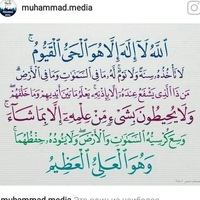 muhammad.media
اللَّهُ لَا إِلَٰهَ إِلَّا هُوَ الْحَيُّ الْقَيُّومُ
لَا تَأْخُذُهُ سِنَةٌ وَلَا نَوْمٌ لَهُ مَا فِي السَّمَٰوَاتِ وَمَا فِي الْأَرْضِ
مَنْ ذَا الَّذِي يَشْفَعُ عِنْدَهُ إِلَّا بِإِذْنِهِ يَعْلَمُ مَا بَيْنَ أَيْدِيهِمْ وَمَا خَلْفَهُمْ
وَلَا يُحِيطُونَ بِشَيْءٍ مِنْ عِلْمِهِ إِلَّا بِمَا شَاءَ
وَسِعَ كُرْسِيُّهُ السَّمَٰوَاتِ وَالْأَرْضَ وَلَا يَئُودُهُ حِفْظُهُمَا
وَهُوَ الْعَلِيُّ الْعَظِيمُ
muhammad.media